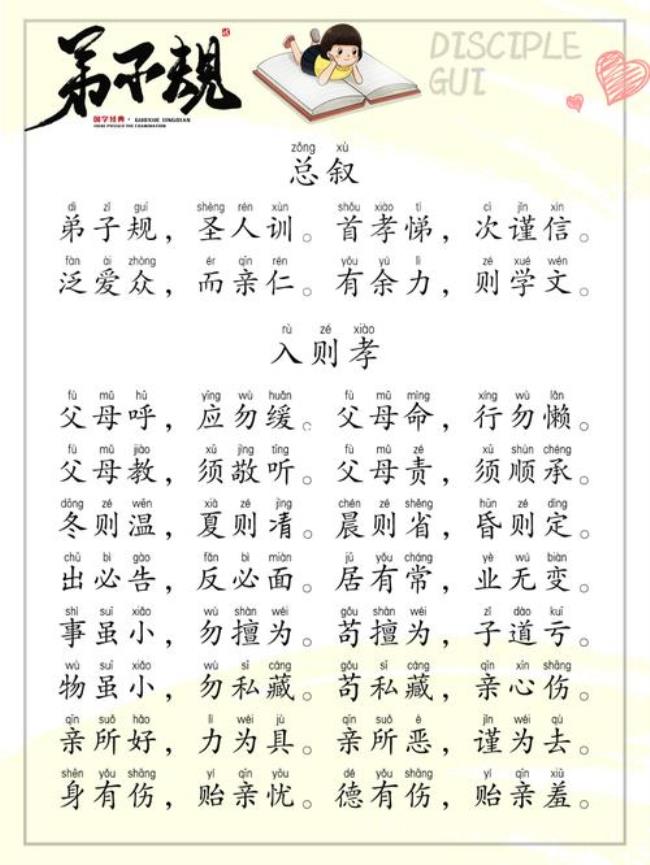 弟子规
国学经典 · GUOXUE JINGDIAN
DISCIPLE
GUI
zǒng xù
总叙
dì zǐ guī shèng rén xùn shǒu xiào tì cì jǐn xìn
弟子规，圣人训。首孝悌，次谨信。
fàn ài zhòng ér qīn rén yǒu yú lì zé xué wén
泛爱众，而亲仁。有余力，则学文。
rù zé xiào
入则孝
fù mǔ hū yīng wù huǎn fù mǔ mìng xíng wù lǎn
父母呼，应勿缓。父母命，行勿懒。
fù mǔ jiào xū jìng tīng fù mǔ zé xū shùn chéng
父母教，须敬听。父母责，须顺承。
dōng zé wēn xià zé jìng chén zé shěng hūn zé dìng
冬则温，夏则凊。晨则省，昏则定。
chū bì gào fǎn bì miàn jū yǒu cháng yè wú biàn
出必告，反必面。居有常，业无变。
shì suī xiǎo wù shàn wéi gǒu shàn wéi zǐ dào kuī
事虽小，勿擅为。苟擅为，子道亏。
wù suī xiǎo wù sī cáng gǒu sī cáng qīn xīn shāng
物虽小，勿私藏。苟私藏，亲心伤。
qīn suǒ hào lì wèi jù qīn suǒ è jǐn wèi qù
亲所好，力为具。亲所恶，谨为去。
shēn yǒu shāng yí qīn yōu dé yǒu shāng yí qīn xiū
身有伤，贻亲忧。德有伤，贻亲羞。